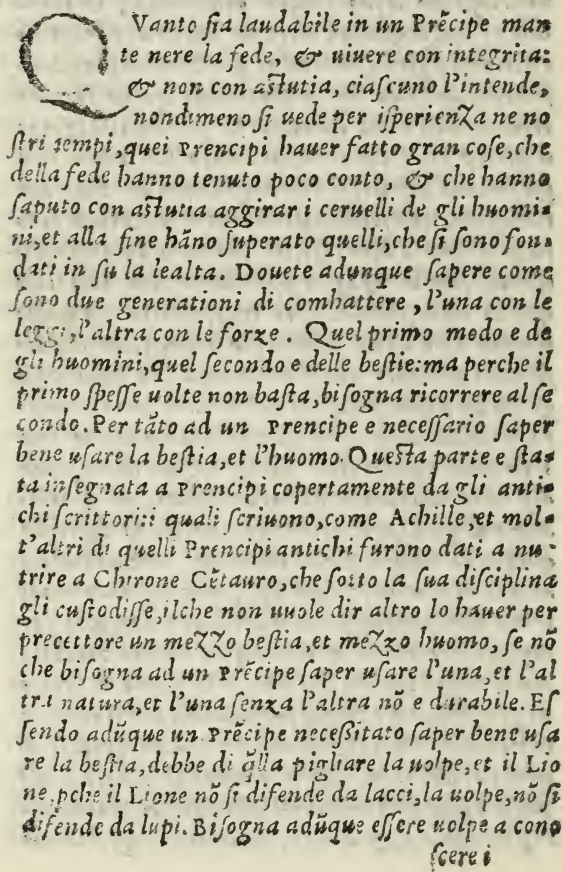 QVanto sia laudabile in un Prēcipe man
te nere la fede, & uiuere con integrita:
& non con astutia, ciascuno l'intende,
nondimeno si uede per isperienza ne no
stri tempi, quei Prencipi hauer fatto gran cose, che
della fede hanno tenuto poco conto, & che hanno
saputo con astutia aggirar i ceruelli de gli huomi-
ni, et alla fine hāno superato quelli, che si sono fon-
dati in su la lealta. Douete adunque sapere come
sono due generationi di combattere, l'una con le
leggi, l'altra con le forze. Quel primo modo e de
gli huomini, quel secondo e delle bestie: ma perche il
primo spesse uolte non basta, bisogna ricorrere al se
condo. Per tāto ad un Prencipe e necessario saper
bene usare la bestia, et l'huomo. Questa parte e sta-
ta insegnata a Prencipi copertamente da gli anti-
chi scrittori: i quali scriuono, come Achille, et mol-
t'altri di quelli Prencipi antichi furono dati a nu-
trire a Chirone Cētauro, che sotto la sua disciplina
gli custodisse, ilche non uuole dir altro lo hauer per
precettore un mezzo bestia, et mezzo huomo, se nō
che bisogna ad un Prēcipe saper usare l'una, et l'al
tra natura, et l'una senza l'altra nō e durabile. Es
sendo adūque un Prēcipe necessitato saper bene usa
re la bestia, debbe di q̄lla pigliare la uolpe, et il Lio
ne, pche il Lione nō si difende da lacci, la uolpe, nō si
difende da lupi. Bisogna adūque essere uolpe a cono
scere i